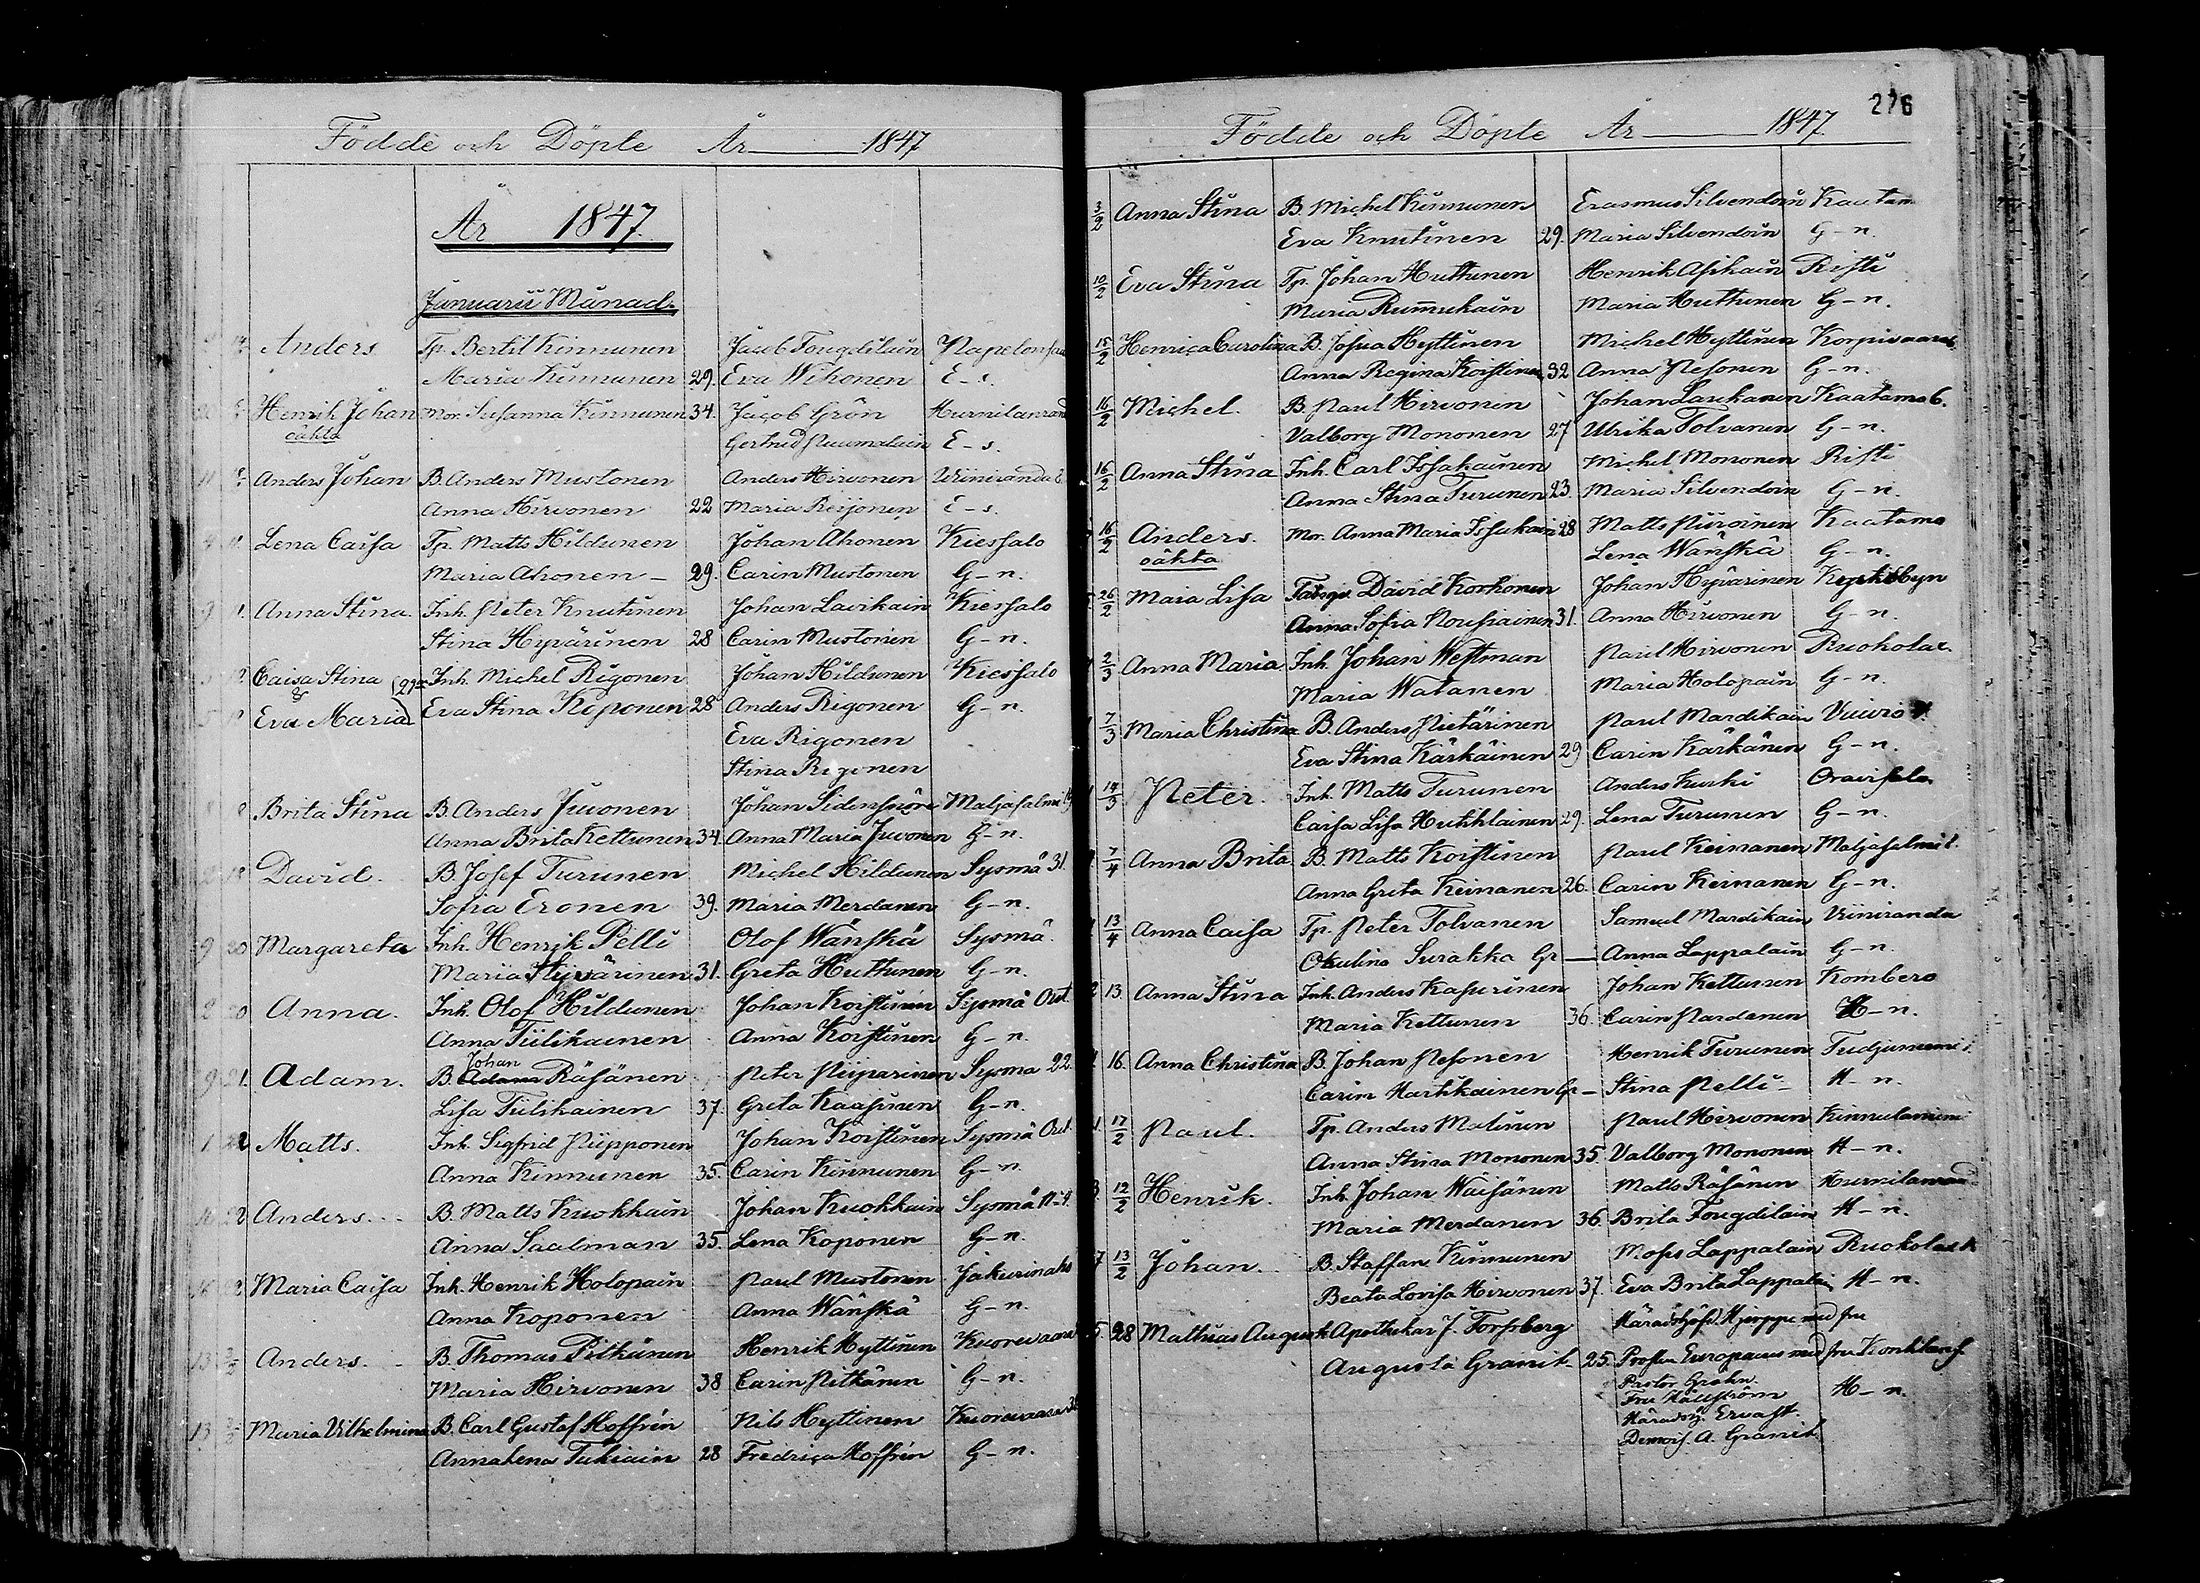 Födde och Döpte År 1847
År 1847.
Januarii Månad.
Anders Tp. Bertil Kinnunen Jacob Fougdilain
Maria Kinnunen 29. Eva Wihonen E-s.
Henrik Johan Mor. Susanna Kinnunen 34. Jacob Grön
oäkta Gertrud E-s.
11 Anders Johan B. Anders Mustonen Anders Hirvonen
Anna Hirvonen 22 Maria Reijonen E-s.
Lena Caisa Tp. Matts Hildunen Johan Ahonen Kiessalo
Maria Ahonen 29. Carin Mustonen G-n.
9 Anna Stina Inh. Peter Knutinen Johan Lavikain Kiessalo
Stina Hyvärinen 28 Carin Mustonen G-n.
Caisa Stina Inh. Michel Rigonen Johan Hildunen Kiessalo
&
Eva Maria Eva Stina Koponen 28 Anders Rigonen G-n.
Eva Rigonen
Stina Rigonen
8 Brita Stina B. Anders Juvonen Johan Maljasalmi
Anna Brita Kettunen 34. Anna Maria Juvonen G-n.
David. B. Josef Turunen Michel Hildunen Sysmä 31.
Sofia Eronen 39. Maria Merdanen G-n.
9 20 Margareta Inh. Henrik Pelli Olof Wänskä Sysmä
Maria Hyvärinen 31. Greta Huttunen G-n.
2 20 Anna. Inh. Olof Hildunen Johan Koistinen Sysmä
Anna Tiilikainen Anna Koistinen G-n.
Johan
9 21. Adam. B. Adam Räsänen Peter Sysmä 22.
Lisa Tiilikainen 37. Greta Kaasinen G-n.
1 22 Matts. Inh. Sigfrid Piipponen Johan Koistinen Sysmä
Anna Kinnunen 35. Carin Kinnunen G-n.
22 Anders. B. Matts Kuokkain Johan Kuokkain Sysmä
Anna Saalman 35. Lena Koponen G-n.
Maria Caisa Inh. Henrik Holopain Paul Mustonen Jakurinaho
Anna Koponen Anna Wänskä G-n.
13 Anders. B. Thomas Pitkänen Henrik Hyttinen Kuorevaara
Maria Hirvonen 38 Carin Pitkänen G-n.
13 Maria Vilhelmina B. Carl Gustaf Hoffrén Nils Hyttinen Kuorevaara
Anna Lena Tukiain 28 Fredrica Hoffrén G-n.
276
Födde och Döpte År 1847.
3/2 Anna Stina B. Michel Kinnunen Erasmus Silvendoin
Eva Knutinen 29. Maria Silvendoin G-n.
10/2 Eva Stina Tp. Johan Huttunen Henrik Asikain Risti
Maria Rumukain Maria Huttunen G-n.
15/2 Henrica Carolina B. Josua Hyttinen Michel Hyttinen Korpivaara
Anna Regina Koistinen 32 Anna Pesonen G-n.
16/2 Michel. B. Paul Hirvonen Johan Laukanen Kaatamo 6.
Valborg Mononen 27 Ulrika Tolvanen G-n.
16/2 Anna Stina Inh. Carl Issakainen Michel Mononen Risti
Anna Stina Turunen 23. Maria Silvendoin G-n.
16/2 Anders. Mor. Anna Maria Issakain 28 Matts Piiroinen Kaatamo
oäkta Lena Wänskä G-n.
26/2 Maia Lisa David Korhonen Johan Hyvärinen Kyrkobyn
Anna Sofia Nousiainen 31. Anna Hirvonen G-n.
2/3 Anna Maria Inh. Johan Westman Paul Hirvonen
Maria Watanen Maria Holopain G-n.
7/3 Maria Christina B. Anders Pietärinen Paul Mardikain
Eva Stina Kärkäinen 29 Carin Kärkänen G-n.
14/3 Peter. Inh. Matts Turunen Anders Kurki Oravisalo
Caisa Lisa Hutihlainen 29. Lena Turunen G-n.
7/4 Anna Brita B. Matts Koistinen Paul Keinanen
Anna Greta Keinanen 26. Carin Keinanen G-n.
13/4 Anna Caisa Tp. Peter Tolvanen Samuel Mardikain Viiniranda
Okulina Surakka Gr — Anna Lappalain G-n.
13. Anna Stina Inh. Anders Kasurinen Johan Kettunen Kombero
Maria Kettunen 36. Carin Pardanen H-n.
16. Anna Christina B. Johan Pesonen Henrik Turunen
Carin Hartikainen Gr — Stina Pelli H-n.
17/2 Paul. Tp. Anders Matinen Paul Hirvonen
Anna Stina Mononen 35. Valborg Mononen H-n.
12/2 Henrik. Inh. Johan Waisänen Matts Räsänen
Maria Merdanen 36. Brita Fougdilain H-n.
13/2 Johan. B. Staffan Kinnunen Moses Lappalain
Beata Lovisa Hirvonen 37. Eva Brita Lappalain H-n.
28 Mathias August Apothekar J. Forssberg Häradshöfd. Hjerppe med fru
Augusta Granit 25. Europaeus med fru
Pastor Grahn
Fru H-n.
Ervast.
Demois. A. Granit